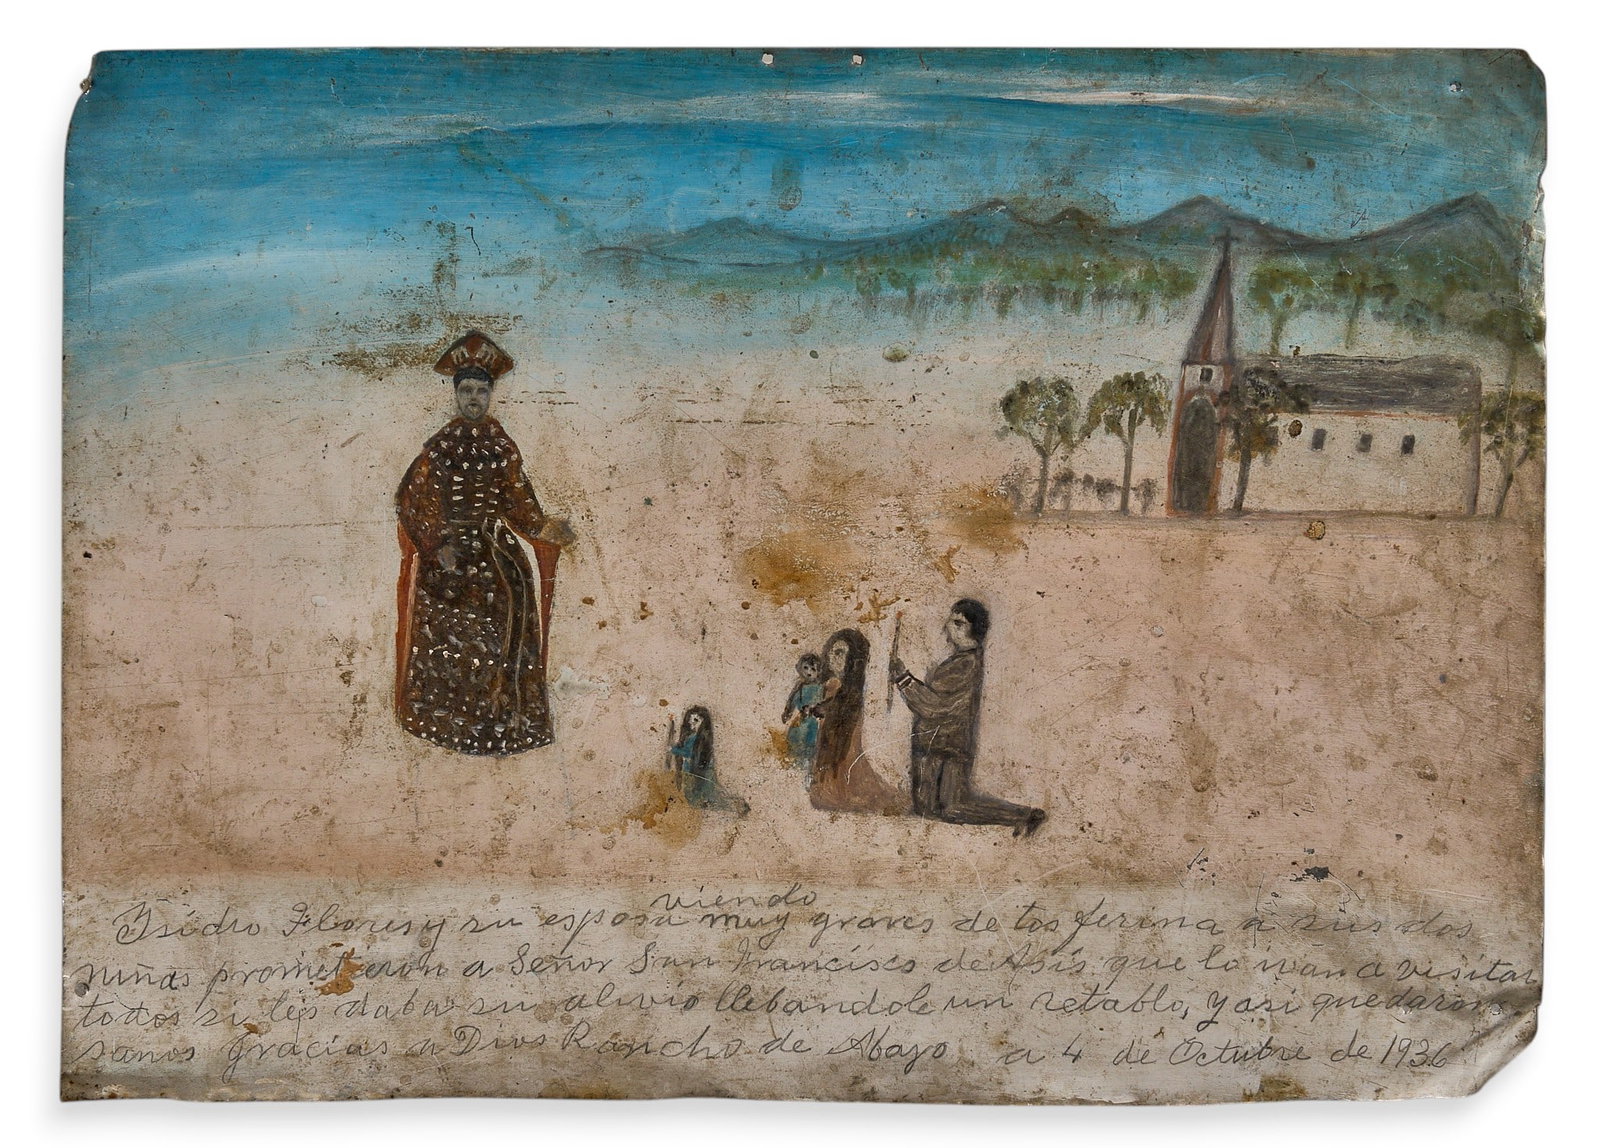 viendo
Ysidro Flores y su esposa muy graves de tos ferina a sus dos
niñas prometieron a Señor San Francisco de Asis que lo irian a visitar
todos si les daba su alivio llebandole un retablo, y asi quedaron
sanos gracias a Dios Rancho de Abajo a 4 de Octubre de 1936